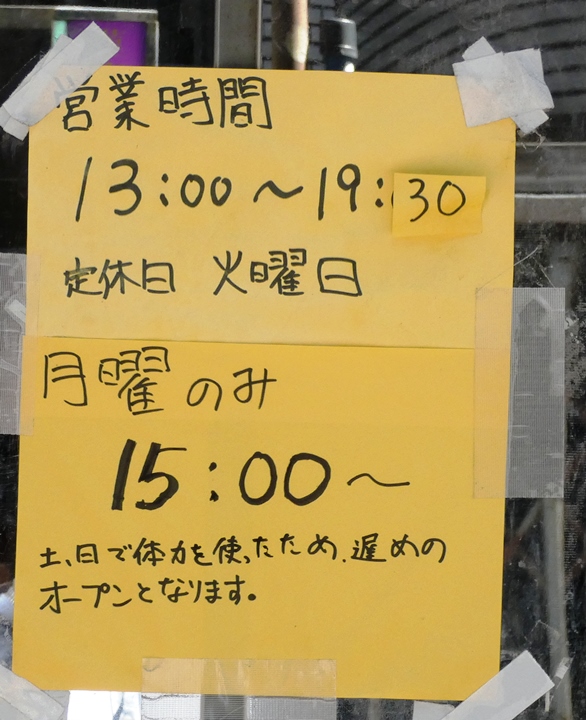 営業時間
13:00～19:30
定休日 火曜日
月曜のみ
15:00～
土、日で体力を使ったため、遅めの
オープンとなります。